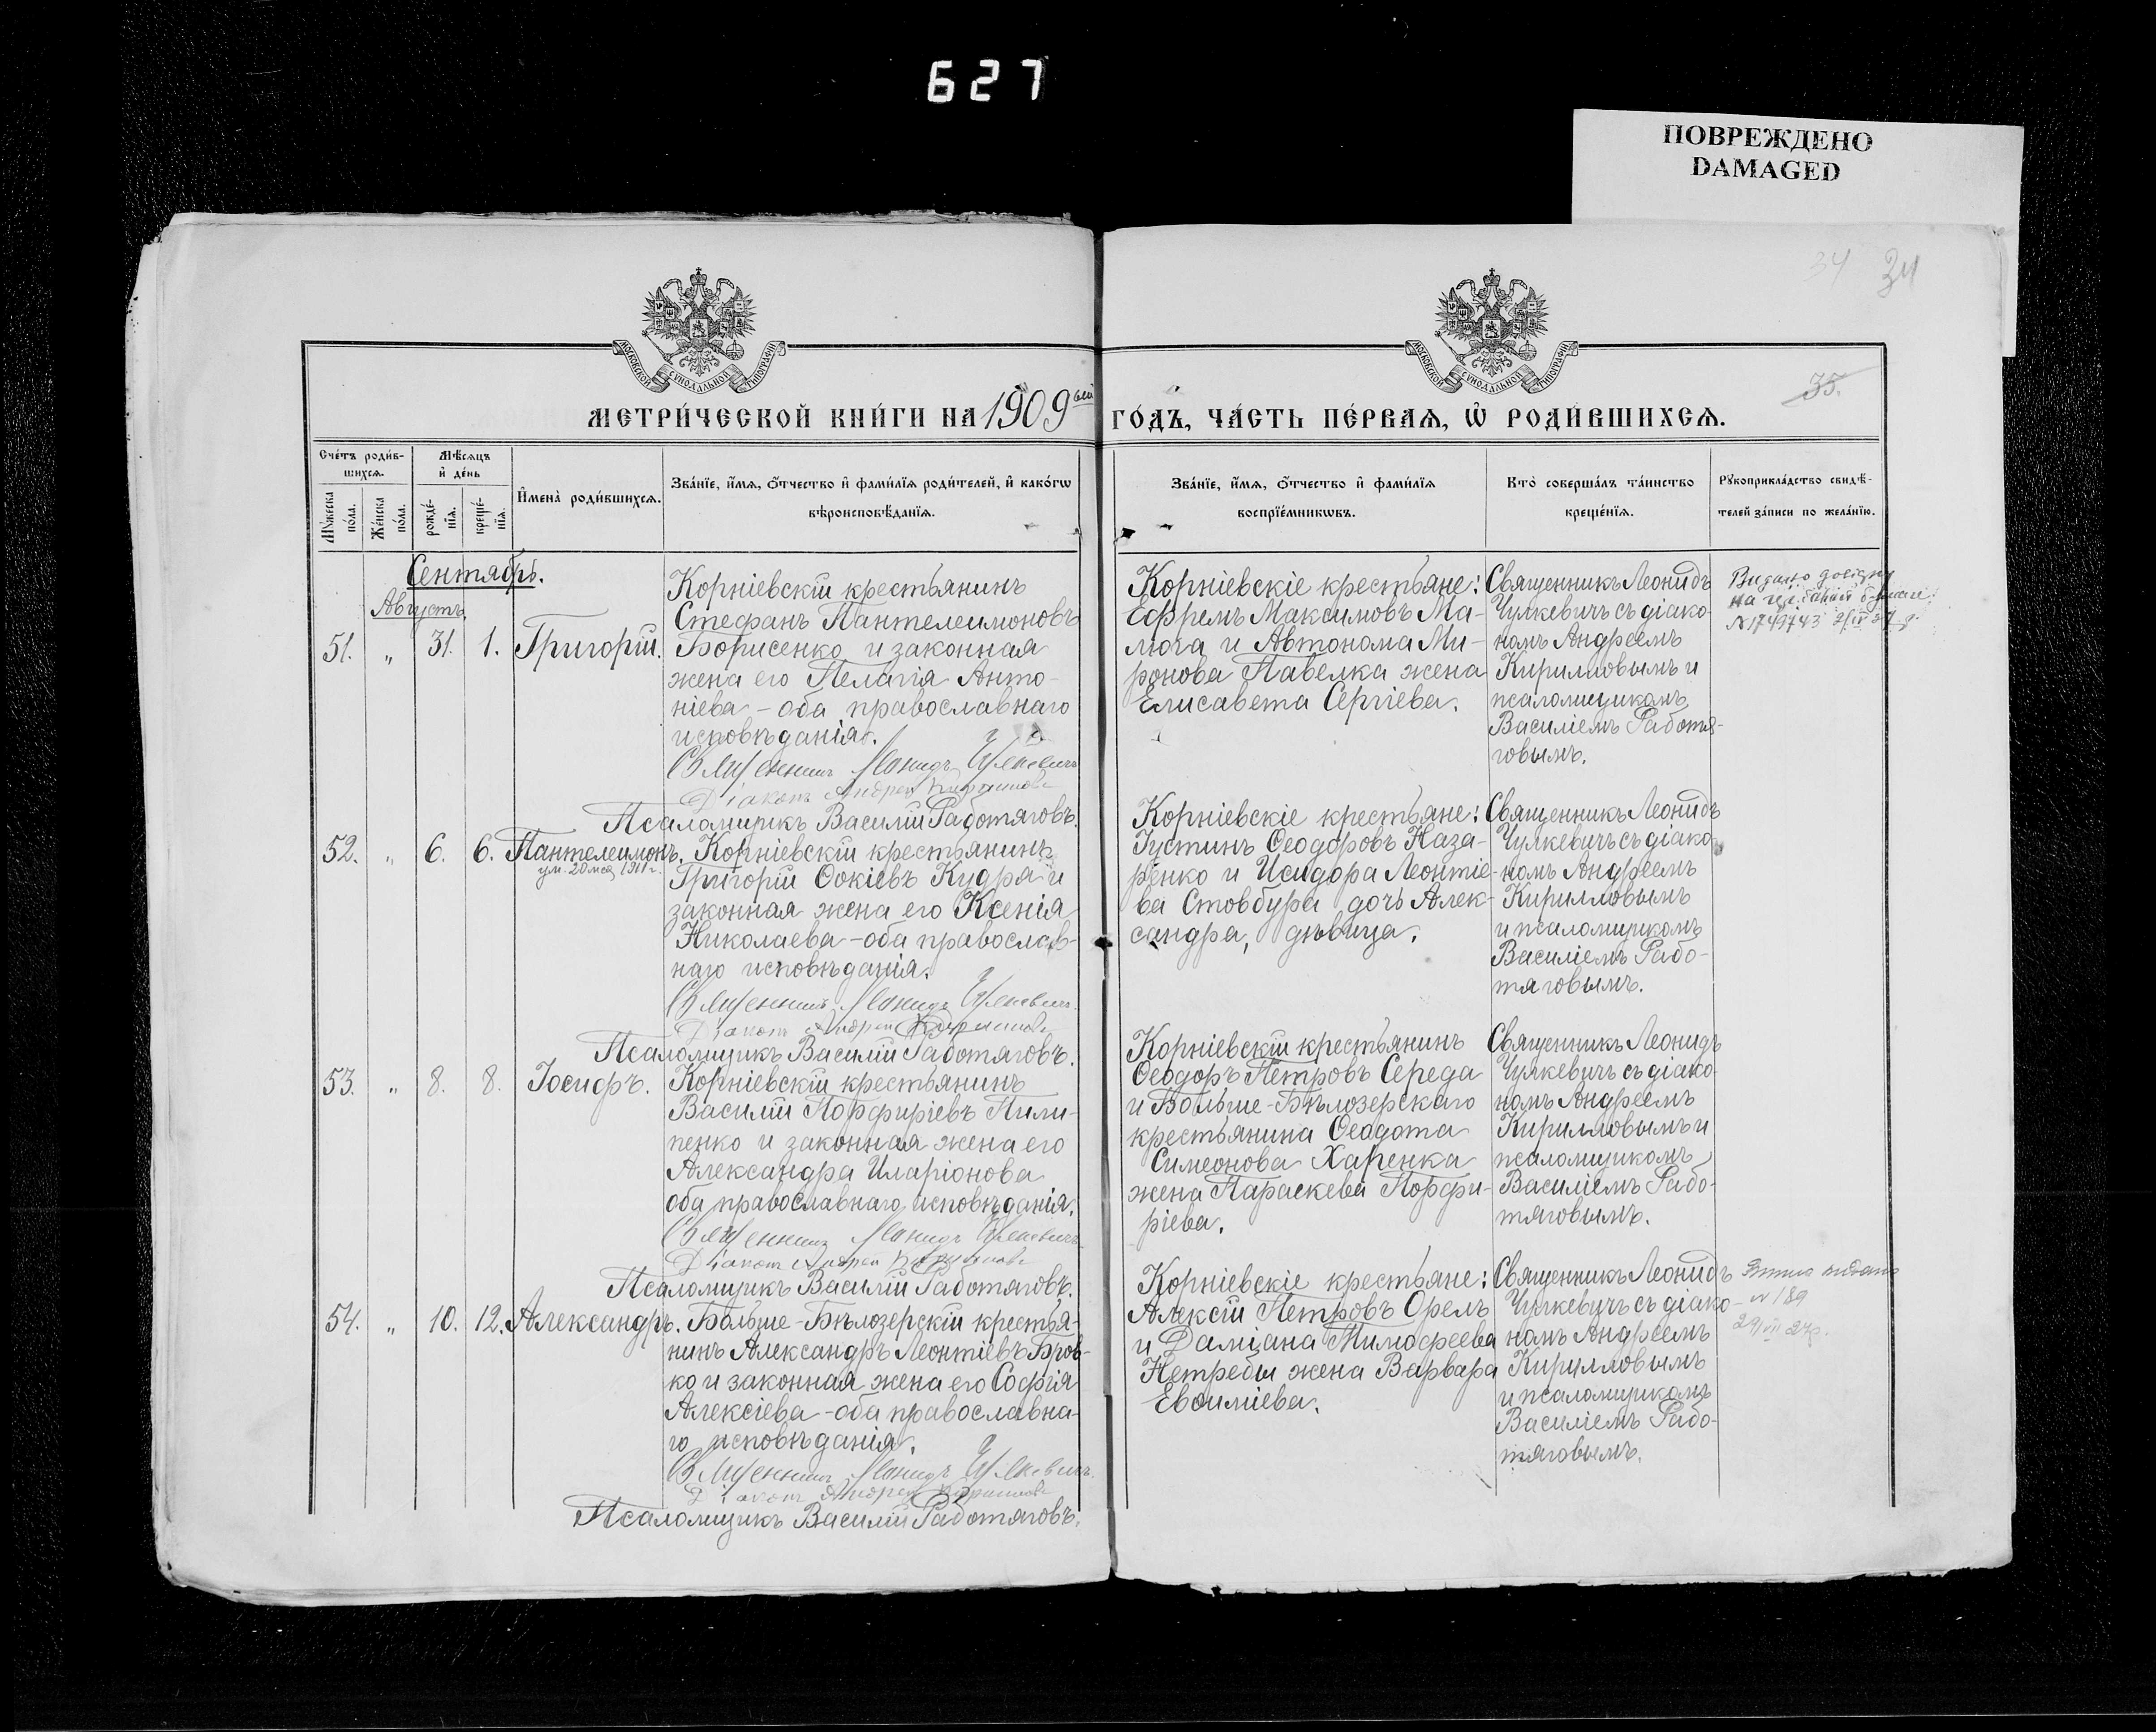 627
ПОВРЕЖДЕНО
DAMAGED
34 34
МОСКОВСКОЙ СѴНОДАЛЬНОЙ ТИПОГРАФІИ
МОСКОВСКОЙ СѴНОДАЛЬНОЙ ТИПОГРАФІИ
35.
МЕТРИ́ЧЕСКОЙ КНИ́ГИ НА 1909 ый ГО́ДЪ, ЧА́СТЬ ПЕ́РВАѦ, Ѡ҆ РОДИ́ВШИХСѦ.
Сче́тъ роди́в-
шихсѧ.
Мѣ́сѧцъ
и҆ де́нь
Мꙋ́жеска
по́ла.
Же́нска
по́ла.
рожде́-
нїѧ.
креще́-
нїѧ.
И҆мена̀ роди́вшихсѧ.
Зва́нїе, и҆́мѧ, ѻ҆́тчество и҆ фами́лїѧ роди́телей, и҆ како́гѡ
вѣроисповѣ́данїѧ.
Зва́нїе, и҆́мѧ, ѻ҆́тчество и҆ фами́лїѧ
воспрїе́мникѡвъ.
Кто̀ соверша́лъ та́инство
креще́нїѧ.
Рꙋкоприкла́дство свидѣ́-
телей за́писи по жела́нїю.
Сентябрь.
Августъ
51. „ 31. 1. Григорій.
Корніевскій крестьянинъ
Стефанъ Пантелеимоновъ
Борисенко и законная
жена его Пелагія Анто-
ніева - оба православнаго
исповѣданія.
Священникъ Леонидъ Чулкевичъ
Діаконъ Андрей Кирилловъ
Псаломщикъ Василій Работяговъ.
Корніевскіе крестьяне:
Ефремъ Максимовъ Ма-
люга и Автонома Ми-
ронова Павелка жена
Елисавета Сергіева.
Священникъ Леонидъ
Чулкевичъ съ діако-
номъ Андреемъ
Кирилловымъ и
псаломщикомъ
Василіемъ Работя-
говымъ.
Видано
на
№ 1749743
52. „ 6. 6. Пантелеимонъ.
ум. 20 1911 г.
Корніевскій крестьянинъ
Григорій Ѳокіевъ Кудра и
законная жена его Ксенія
Николаева - оба православ-
наго исповѣданія.
Священникъ Леонидъ Чулкевичъ
Діаконъ Андрей Кирилловъ
Псаломщикъ Василій Работяговъ.
Корніевскіе крестьяне:
Іустинъ Ѳеодоровъ Наза-
ренко и Исидора Леонтіе-
ва Стовбура дочь Алек-
сандра, дѣвица.
Священникъ Леонидъ
Чулкевичъ съ діако-
номъ Андреемъ
Кирилловымъ
и псаломщикомъ
Василіемъ Рабо-
тяговымъ.
53. „ 8. 8. Іосифъ.
Корніевскій крестьянинъ
Василій Порфиріевъ Пили-
пенко и законная жена его
Александра Иларіонова
оба православнаго исповѣданія.
Священникъ Леонидъ Чулкевичъ
Діаконъ Андрей Кирилловъ
Псаломщикъ Василій Работяговъ.
Корніевскій крестьянинъ
Ѳеодоръ Петровъ Середа
и Больше-Бѣлозерскаго
крестьянина Ѳеодота
Симеонова Харенка
жена Параскева Порфи-
ріева.
Священникъ Леонидъ
Чулкевичъ съ діако-
номъ Андреемъ
Кирилловымъ и
псаломщикомъ
Василіемъ Рабо-
тяговымъ.
54. „ 10. 12. Александръ.
Больше-Бѣлозерскій крестья-
нинъ Александръ Леонтіевъ Бров-
ко и законная жена его Софія
Алексіева - оба православна-
го исповѣданія.
Священникъ Леонидъ Чулкевичъ
Діаконъ Андрей Кирилловъ
Псаломщикъ Василій Работяговъ.
Корніевскіе крестьяне:
Алексій Петровъ Орелъ
и Даміана Тимофеева
Нетребы жена Варвара
Евѳиміева.
Священникъ Леонидъ
Чулкевичъ съ діако-
номъ Андреемъ
Кирилловымъ
и псаломщикомъ
Василіемъ Рабо-
тяговымъ.
№ 189